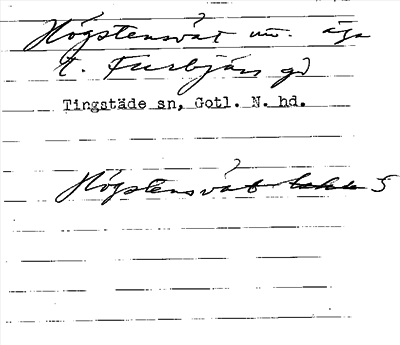 Högstensvät
t. Furbjärs gd
Tingstäde sn, Gotl. N. hd.
Högstensvät 5